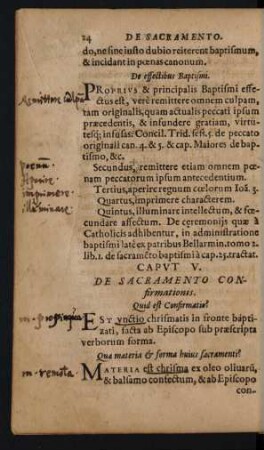 24 DE SACRAMENTO.
do, ne sine iusto dubio reiterent baptismum,
& incidant in pœnas canonum.
De effectibus Baptismi.
PROPRIVS & principalis Baptismi effe-
ctus est, verè remittere omnem culpam,
tam originalis, quam actualis peccati ipsum
præcedentis, & infundere gratiam, virtu-
tesq; infusas Concil. Trid. sess. 5. de peccato
originali can. 4. & 5. & cap. Maiores de bap-
tismo, &c.
Secundus, remittere etiam omnem pœ-
nam peccatorum ipsum antecedentium.
Tertius, aperire regnum cœlorum Ioã. 3.
Quartus, imprimere characterem.
Quintus, illuminare intellectum, & fœ-
cundare affectum. De ceremonijs quæ à
Catholicis adhibentur, in administratione
baptismi latè ex patribus Bellarmin. tomo 2.
lib. 1. de sacramẽto baptismi à cap. 25. tractat.
CAPVT V.
DE SACRAMENTO CON-
firmationis.
Quid est Confirmatio?
EST vnctio chrismatis in fronte bapti-
zati, facta ab Episcopo sub præscripta
verborum forma.
Qua materia & forma huius sacramenti?
MATERIA est chrisma ex oleo oliuarũ,
& balsamo confectum, & ab Episcopo
con-
Remittere
pœnã.
Aperire
imprimere
illuminare
m. proxima
m. remota